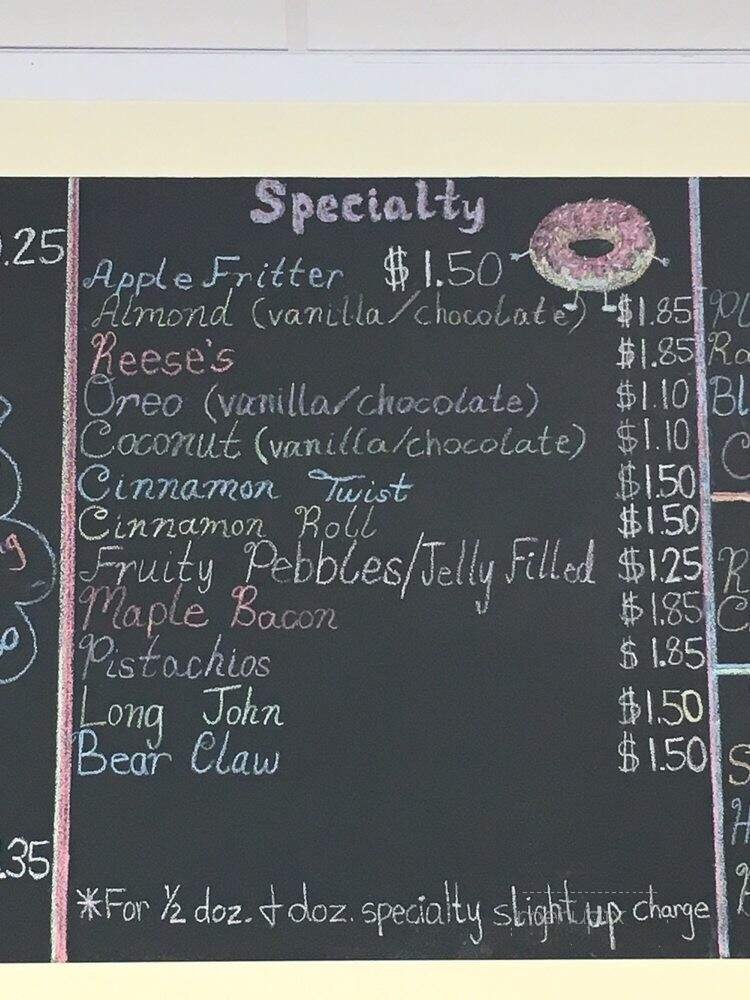 Specialty
Apple Fritter $1.50
Almond (vanilla/chocolate) $1.85
Reese's $1.85
Oreo (vanilla/chocolate) $1.10
Coconut (vanilla/chocolate) $1.10
Cinnamon Twist $1.50
Cinnamon Roll $1.50
Fruity Pebbles/Jelly Filled $1.25
Maple Bacon $1.85
Pistachios $1.85
Long John $1.50
Bear Claw $1.50
*For ½ doz. + doz. specialty slight up charge
.25
.35